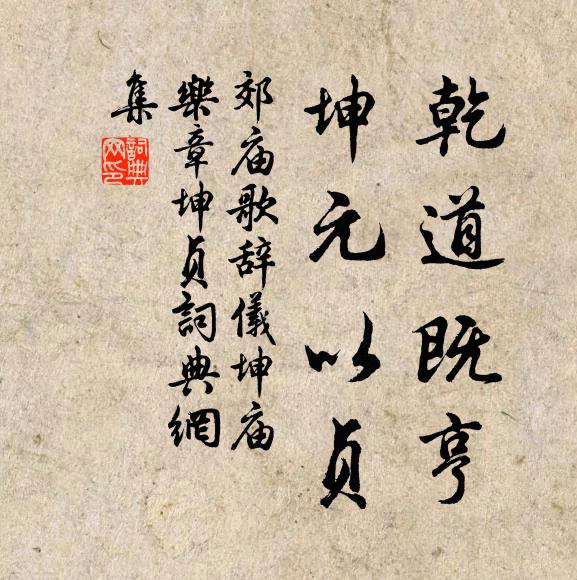 乾道既亨
坤元以贞
郊庙歌辞儀坤庙
樂章坤贞詞典網
集
詞典
网印